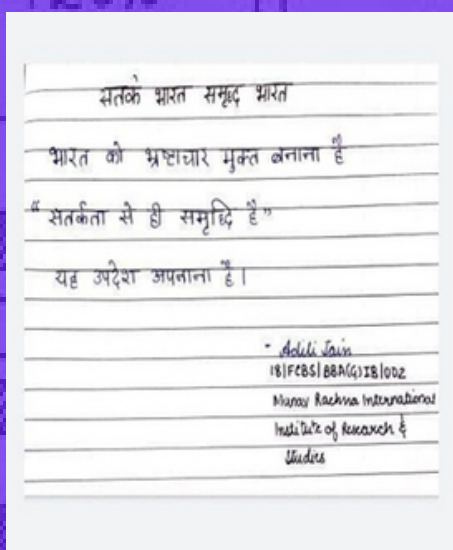 सतर्क भारत समृद्ध भारत
भारत को भ्रष्टाचार मुक्त बनाना है
“ सतर्कता से ही समृद्धि है ”
यह उपदेश अपनाना है।
- Aditi Jain
18/FCBS/BBA(G)IB/002
Manav Rachna International
Institute of Research &
Studies